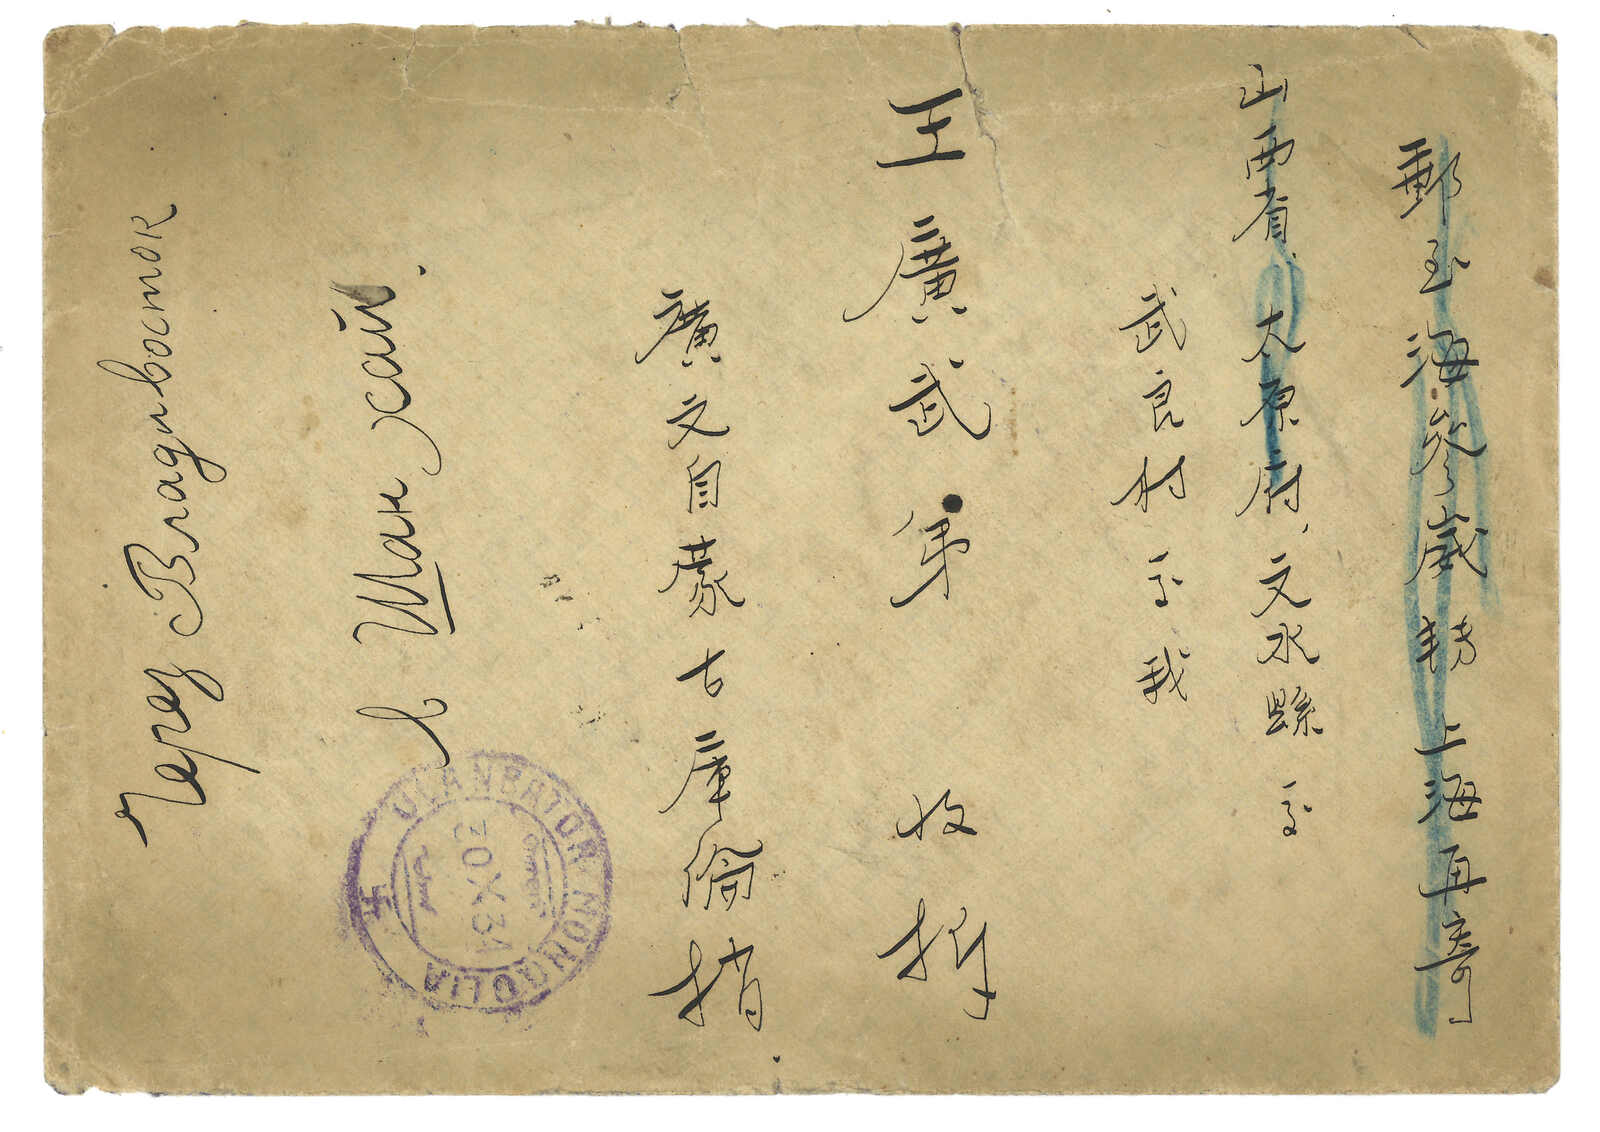 郵至海參崴轉上海再寄
山西省、太原府、文水縣至
武良村至我
王廣武弟 收拆
廣文自蒙古庫倫捎
в Шанхай.
Через Владивосток
ULANBATOR MONGOLIA
30 X 31